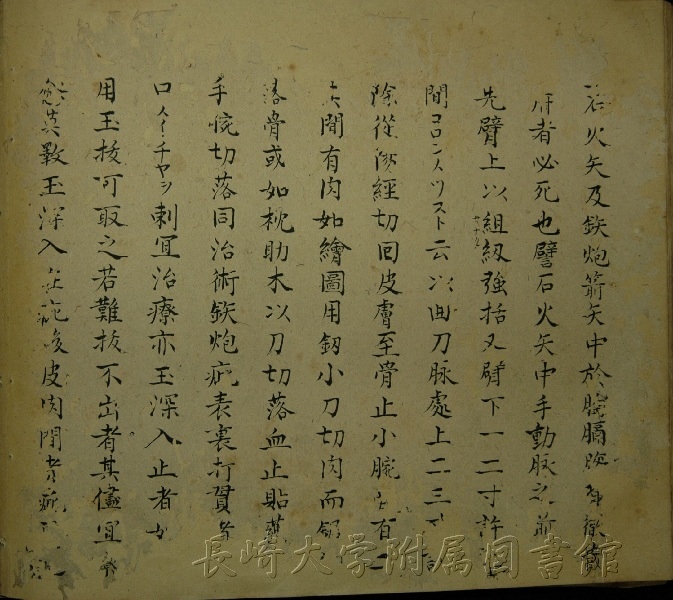 石火矢及鉄炮箭矢中於腕膈
府者必死也譬石火矢中手動脉之
先臂上以組紐強括又臂下一二寸許
間コロンメツスト云以曲刀脉處上二三寸
除從經切回皮膚至骨止小腕有二
間有肉如繪圖用釼小刀切肉而
落骨或如枕助木以刀切落血止貼藥
手怃切落同治術鉄炮疵表裏打貫者
口刺宜治療亦玉深入止者
用玉拔可取之若難拔不出者其儘宜
数玉深入疵後皮肉閉者疵
長崎大学附属図書館